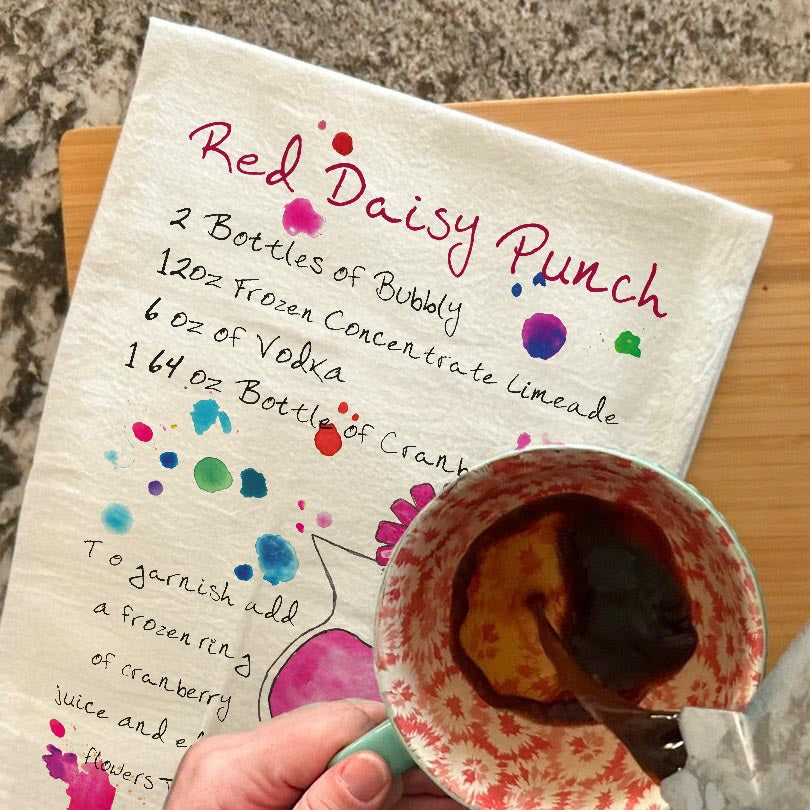 Red Daisy Punch
2 Bottles of Bubbly
12oz Frozen Concentrate Limeade
6 oz of Vodka
1 64 oz Bottle of Cranb
To garnish add
a frozen ring
of cranberry
juice and e
flowers